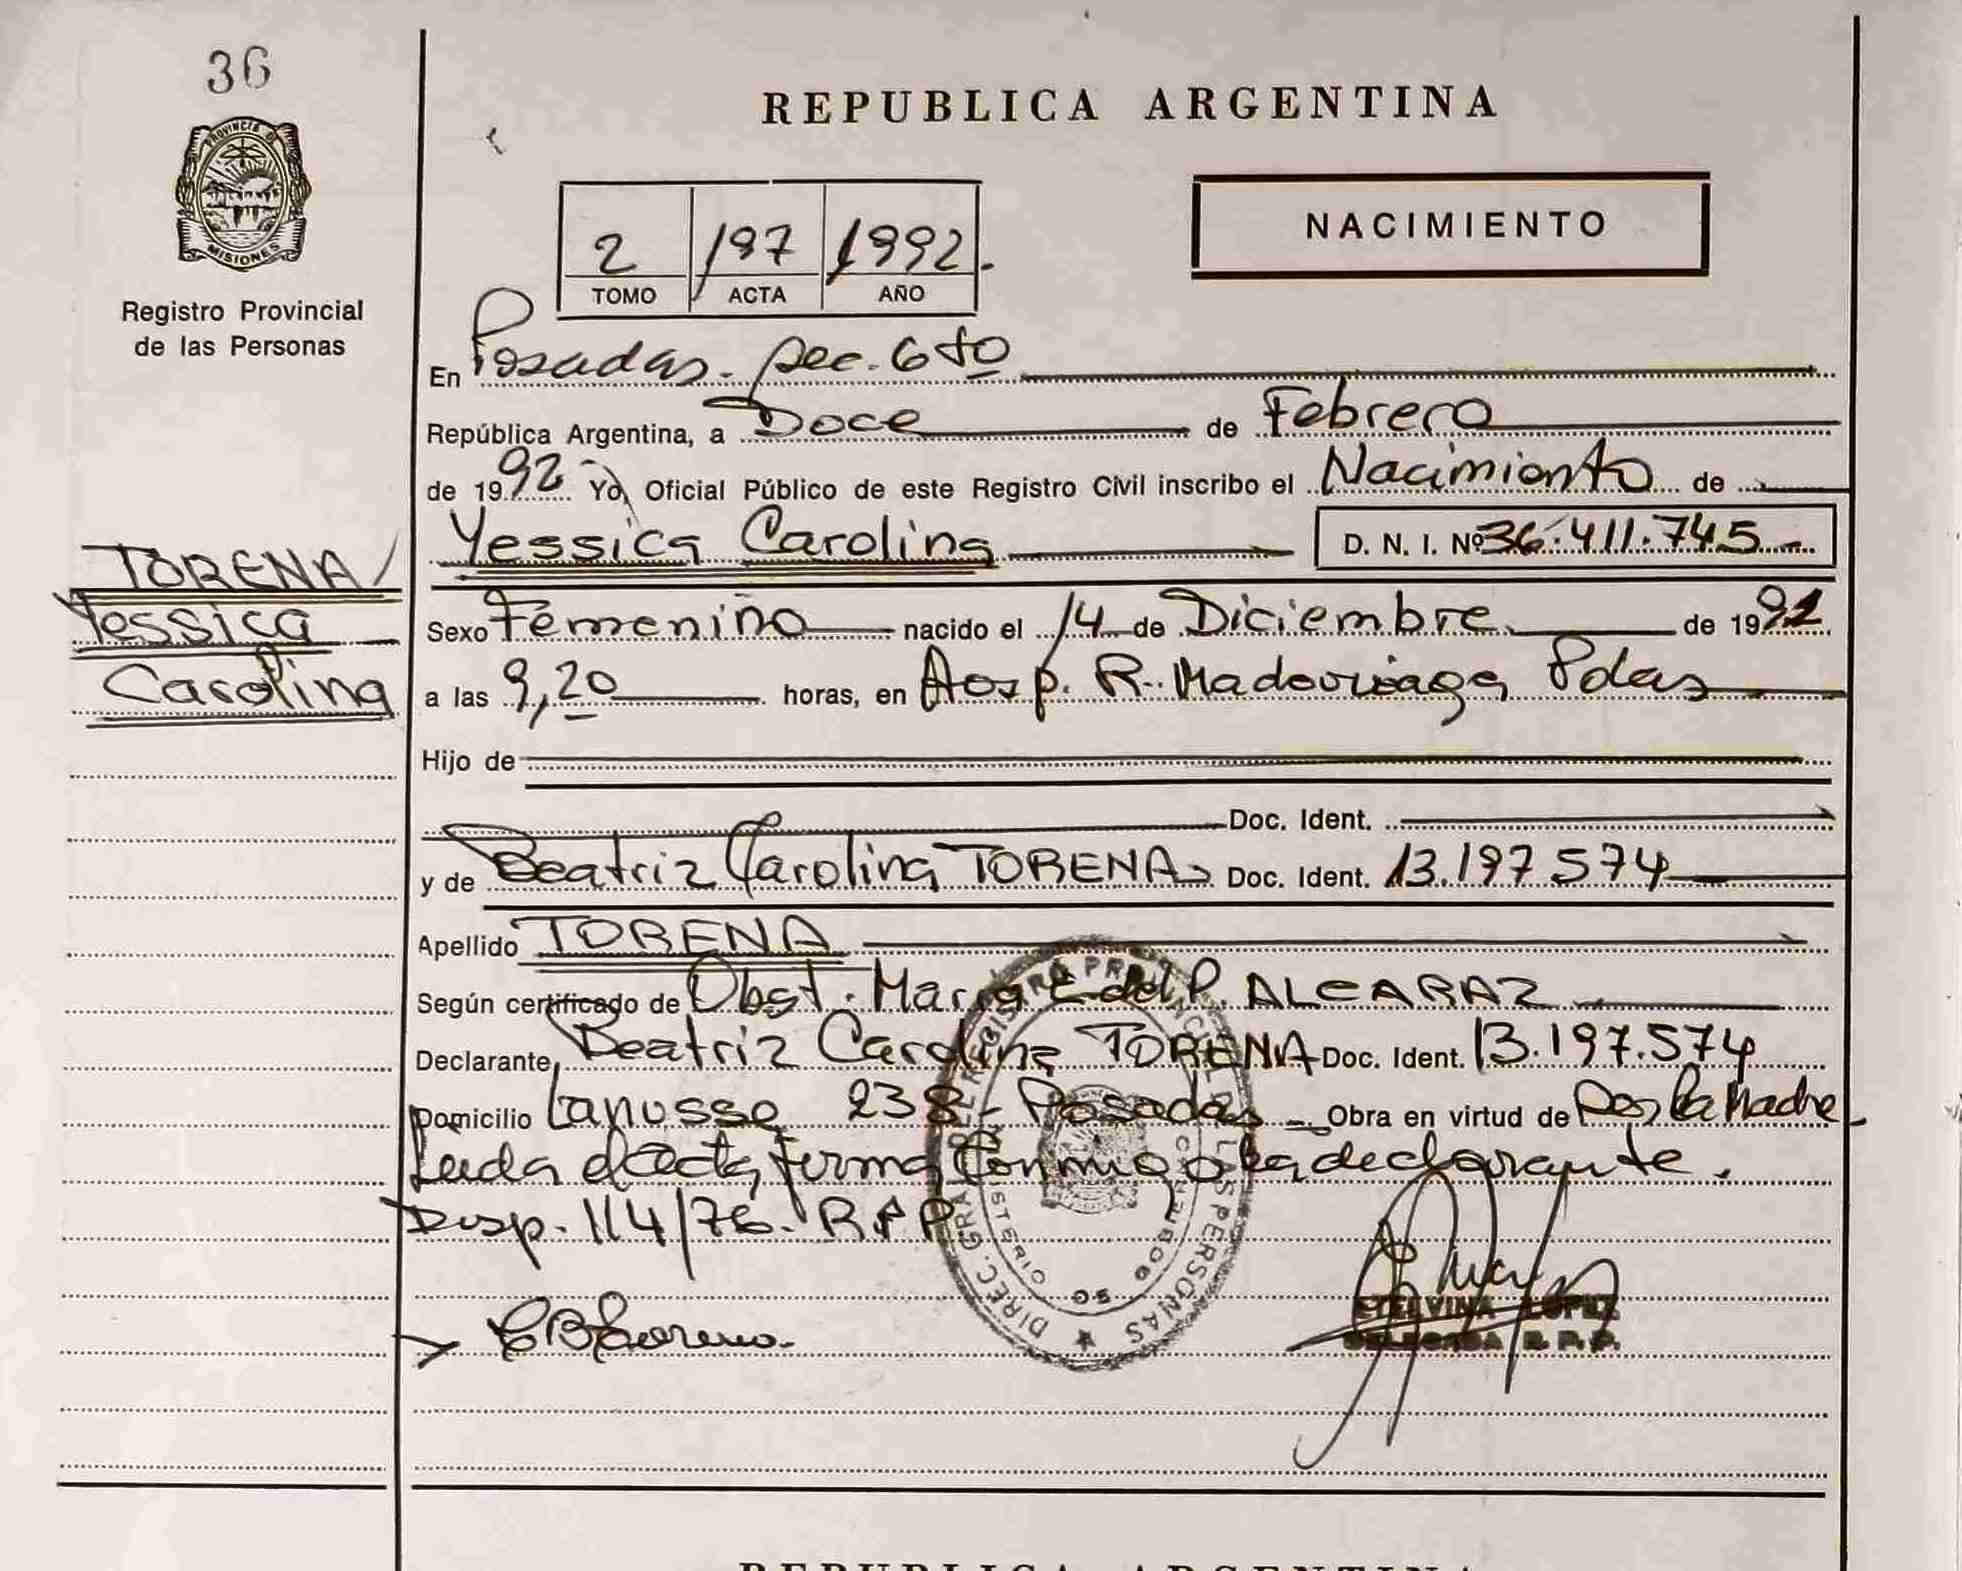 36
PROVINCIA DE
MISIONES
Registro Provincial
de las Personas
TORENA
Yessica
Carolina
REPUBLICA ARGENTINA
NACIMIENTO
2 197 1992.
TOMO ACTA AÑO
En Posadas. sec. 6ta
República Argentina, a Doce de Febrero
de 1992 Yo, Oficial Público de este Registro Civil inscribo el Nacimiento de
Yessica Carolina D. N. I. Nº 36.411.745
Sexo Femenino nacido el 14 de Diciembre de 19
a las 9,20 horas, en Hosp. R. Madariaga Pdas
Hijo de
Doc. Ident.
y de Beatriz Carolina TORENA Doc. Ident. 13.197.574
Apellido TORENA
Según certificado de Obst. Maria E del P. ALCARAZ
Declarante, Beatriz Carolina TORENA Doc. Ident. 13.197.574
Domicilio Lanusse 238 - Posadas Obra en virtud de Ser la Madre
Leida el acta firma conmigo la declarante.
Disp. 114/76. R.P.P
DIREC. GRAL. DEL REGISTRO PROVINCIAL DE LAS PERSONAS
MINISTERIO DE GOBIERNO
ETELVINA LOPEZ
DELEGADA R. P. P.
REPUBLICA ARGENTINA